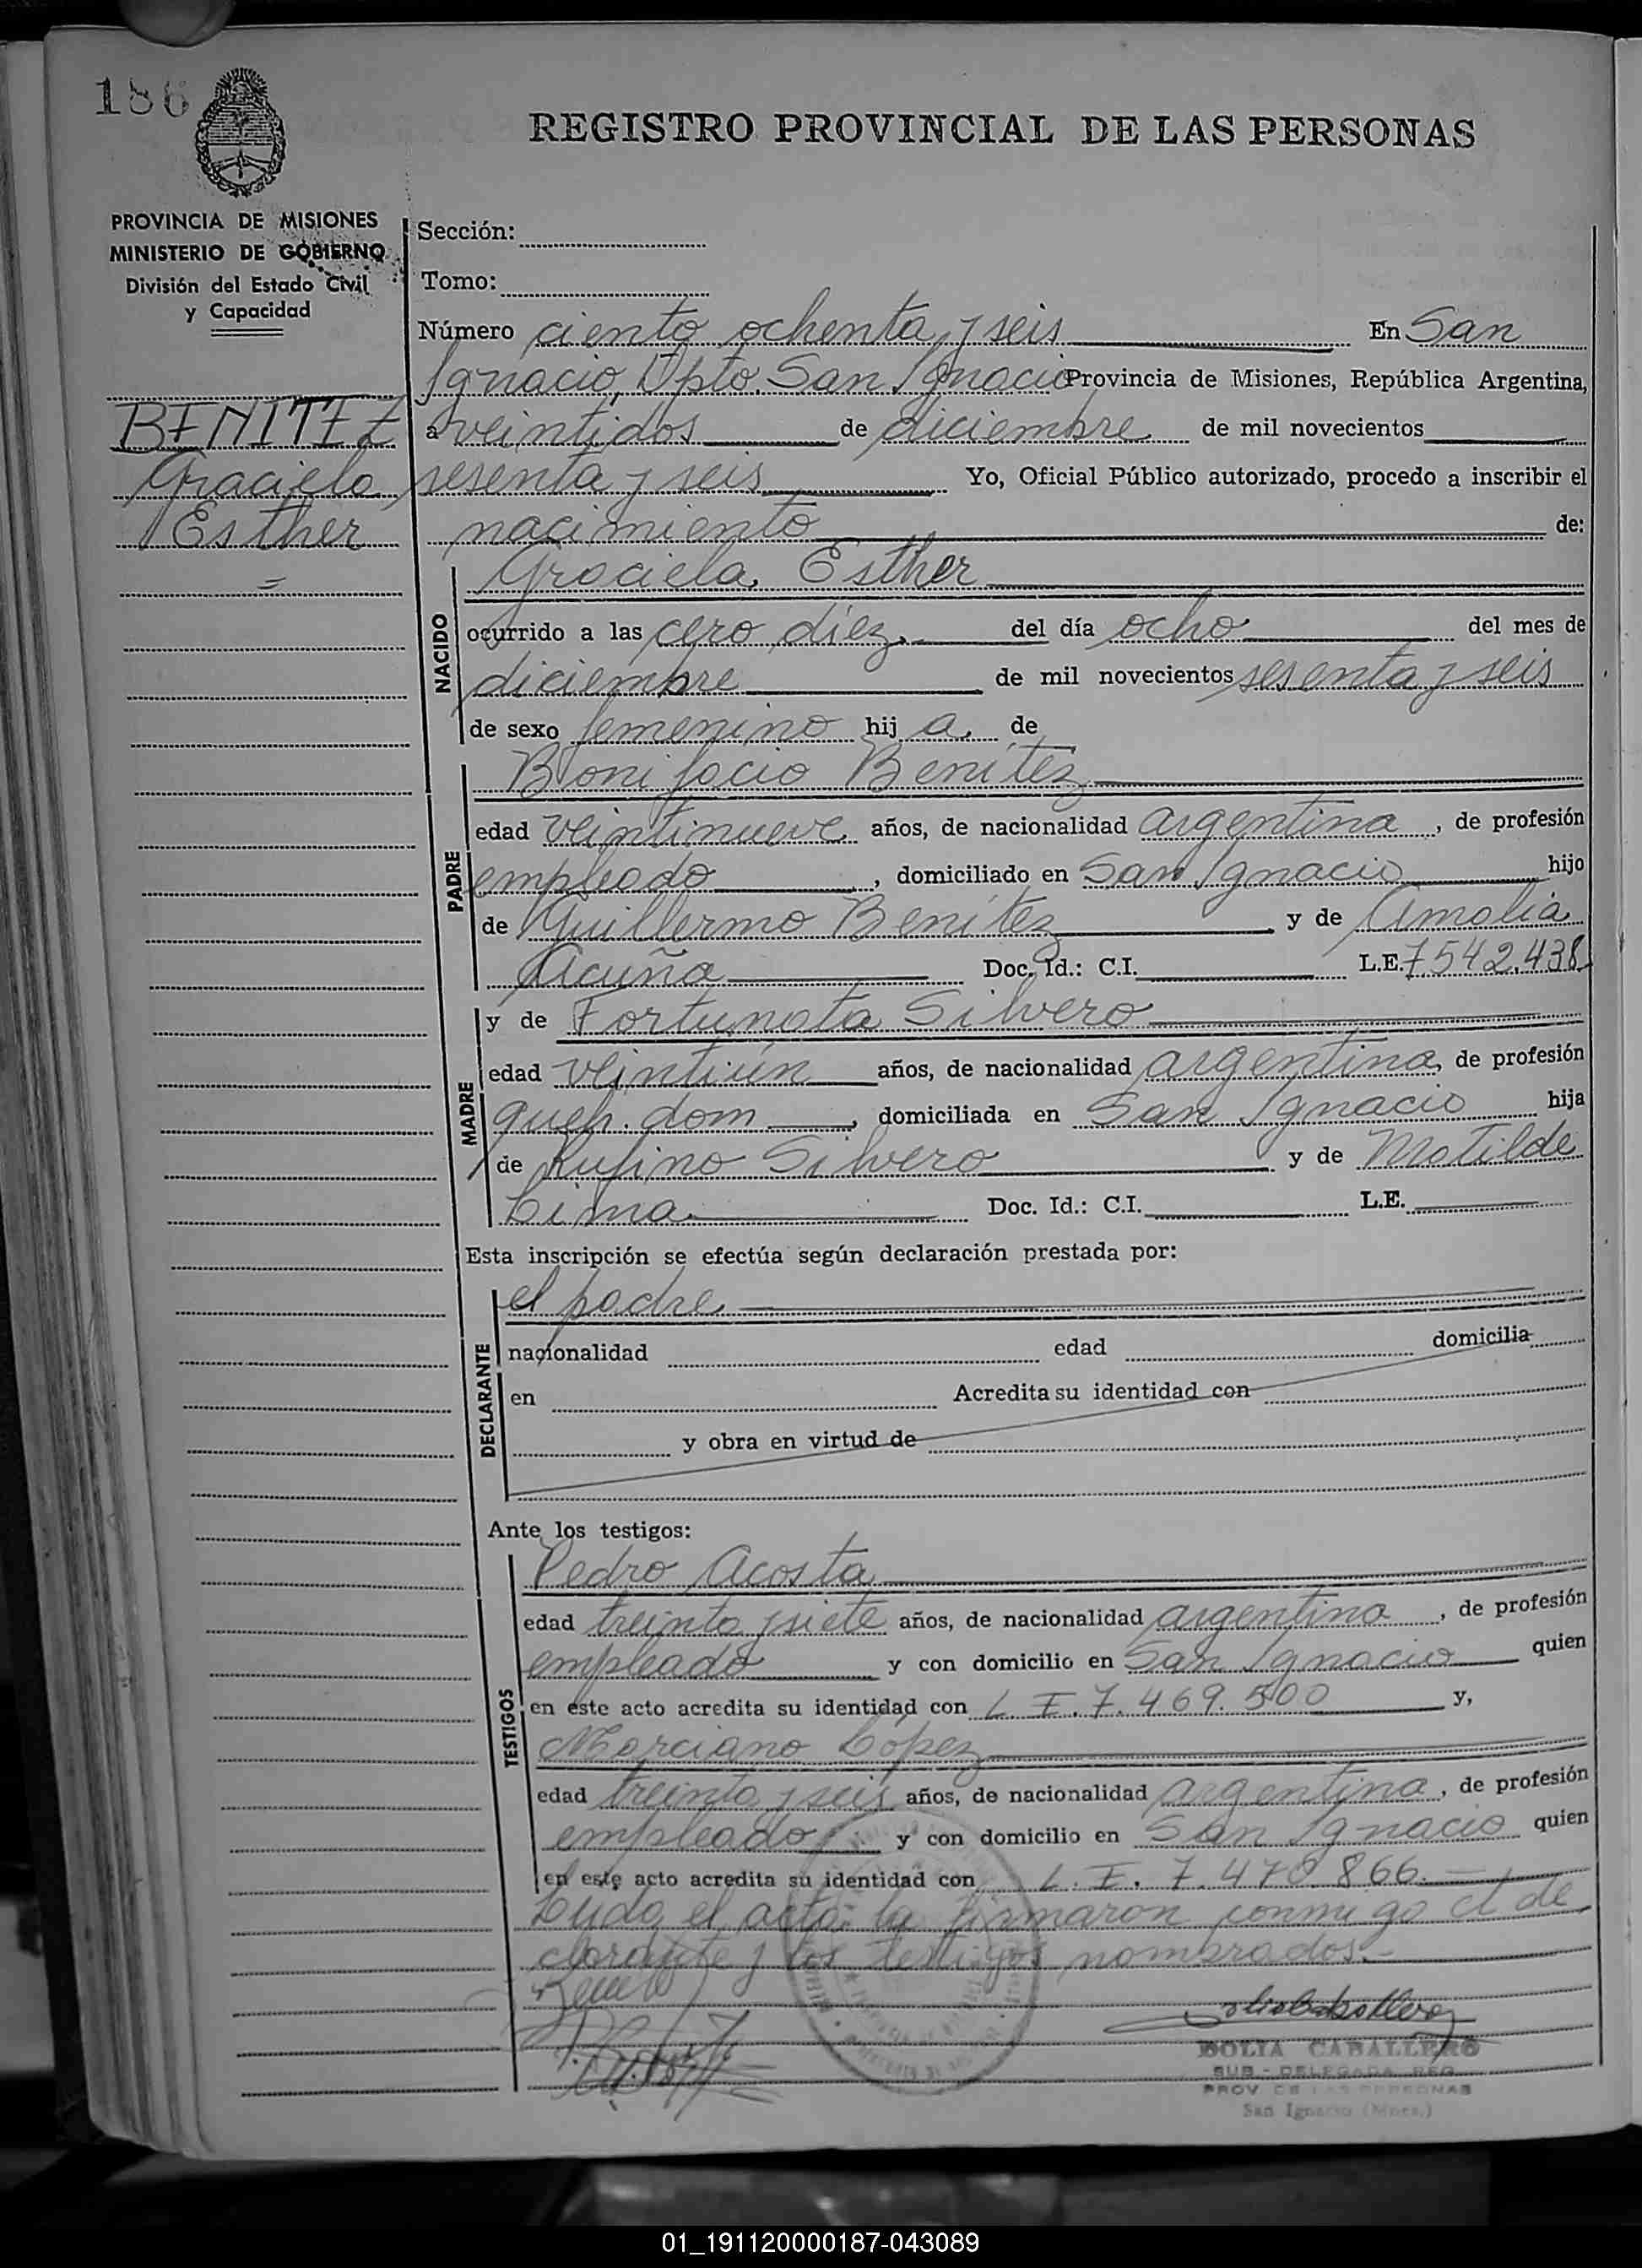 186
REGISTRO PROVINCIAL DE LAS PERSONAS
PROVINCIA DE MISIONES
MINISTERIO DE GOBIERNO
División del Estado Civil
y Capacidad
BENITEZ
Graciela
Esther
Sección:
Tomo:
Número ciento ochenta y seis En San
Ignacio, Dpto. San Ignacio Provincia de Misiones, República Argentina,
a veintidos de diciembre de mil novecientos
sesenta y seis Yo, Oficial Público autorizado, procedo a inscribir el
nacimiento de:
NACIDO
Graciela Esther
ocurrido a las cero diez del día ocho del mes de
diciembre de mil novecientos sesenta y seis
de sexo femenino hij a de
PADRE
Bonifacio Benítez
edad veintinueve años, de nacionalidad argentina, de profesión
empleado, domiciliado en San Ignacio hijo
de Guillermo Benítez y de Amalia
Acuña Doc. Id.: C.I. L.E. 7.542.438
MADRE
y de Fortunata Silvero
edad veintiún años, de nacionalidad argentina, de profesión
queh. dom, domiciliada en San Ignacio hija
de Rufino Silvero y de Matilde
Lima Doc. Id.: C.I. L.E.
Esta inscripción se efectúa según declaración prestada por:
DECLARANTE
el padre
nacionalidad edad domicilia
en Acredita su identidad con
y obra en virtud de
Ante los testigos:
TESTIGOS
Pedro Acosta
edad treinta y siete años, de nacionalidad argentina, de profesión
empleado y con domicilio en San Ignacio quien
en este acto acredita su identidad con L. E. 7.469.500 y,
Marciano López
edad treinta y seis años, de nacionalidad argentina, de profesión
empleado y con domicilio en San Ignacio quien
en este acto acredita su identidad con L. E. 7.470.866.
Leyda el acta la firmaron conmigo el de
clarante y los testigos nombrados.-
DOLIA CABALLERO
SUB - DELEGADA REG.
PROV. DE LAS PERSONAS
San Ignacio (Mnes.)
01_191120000187-043089